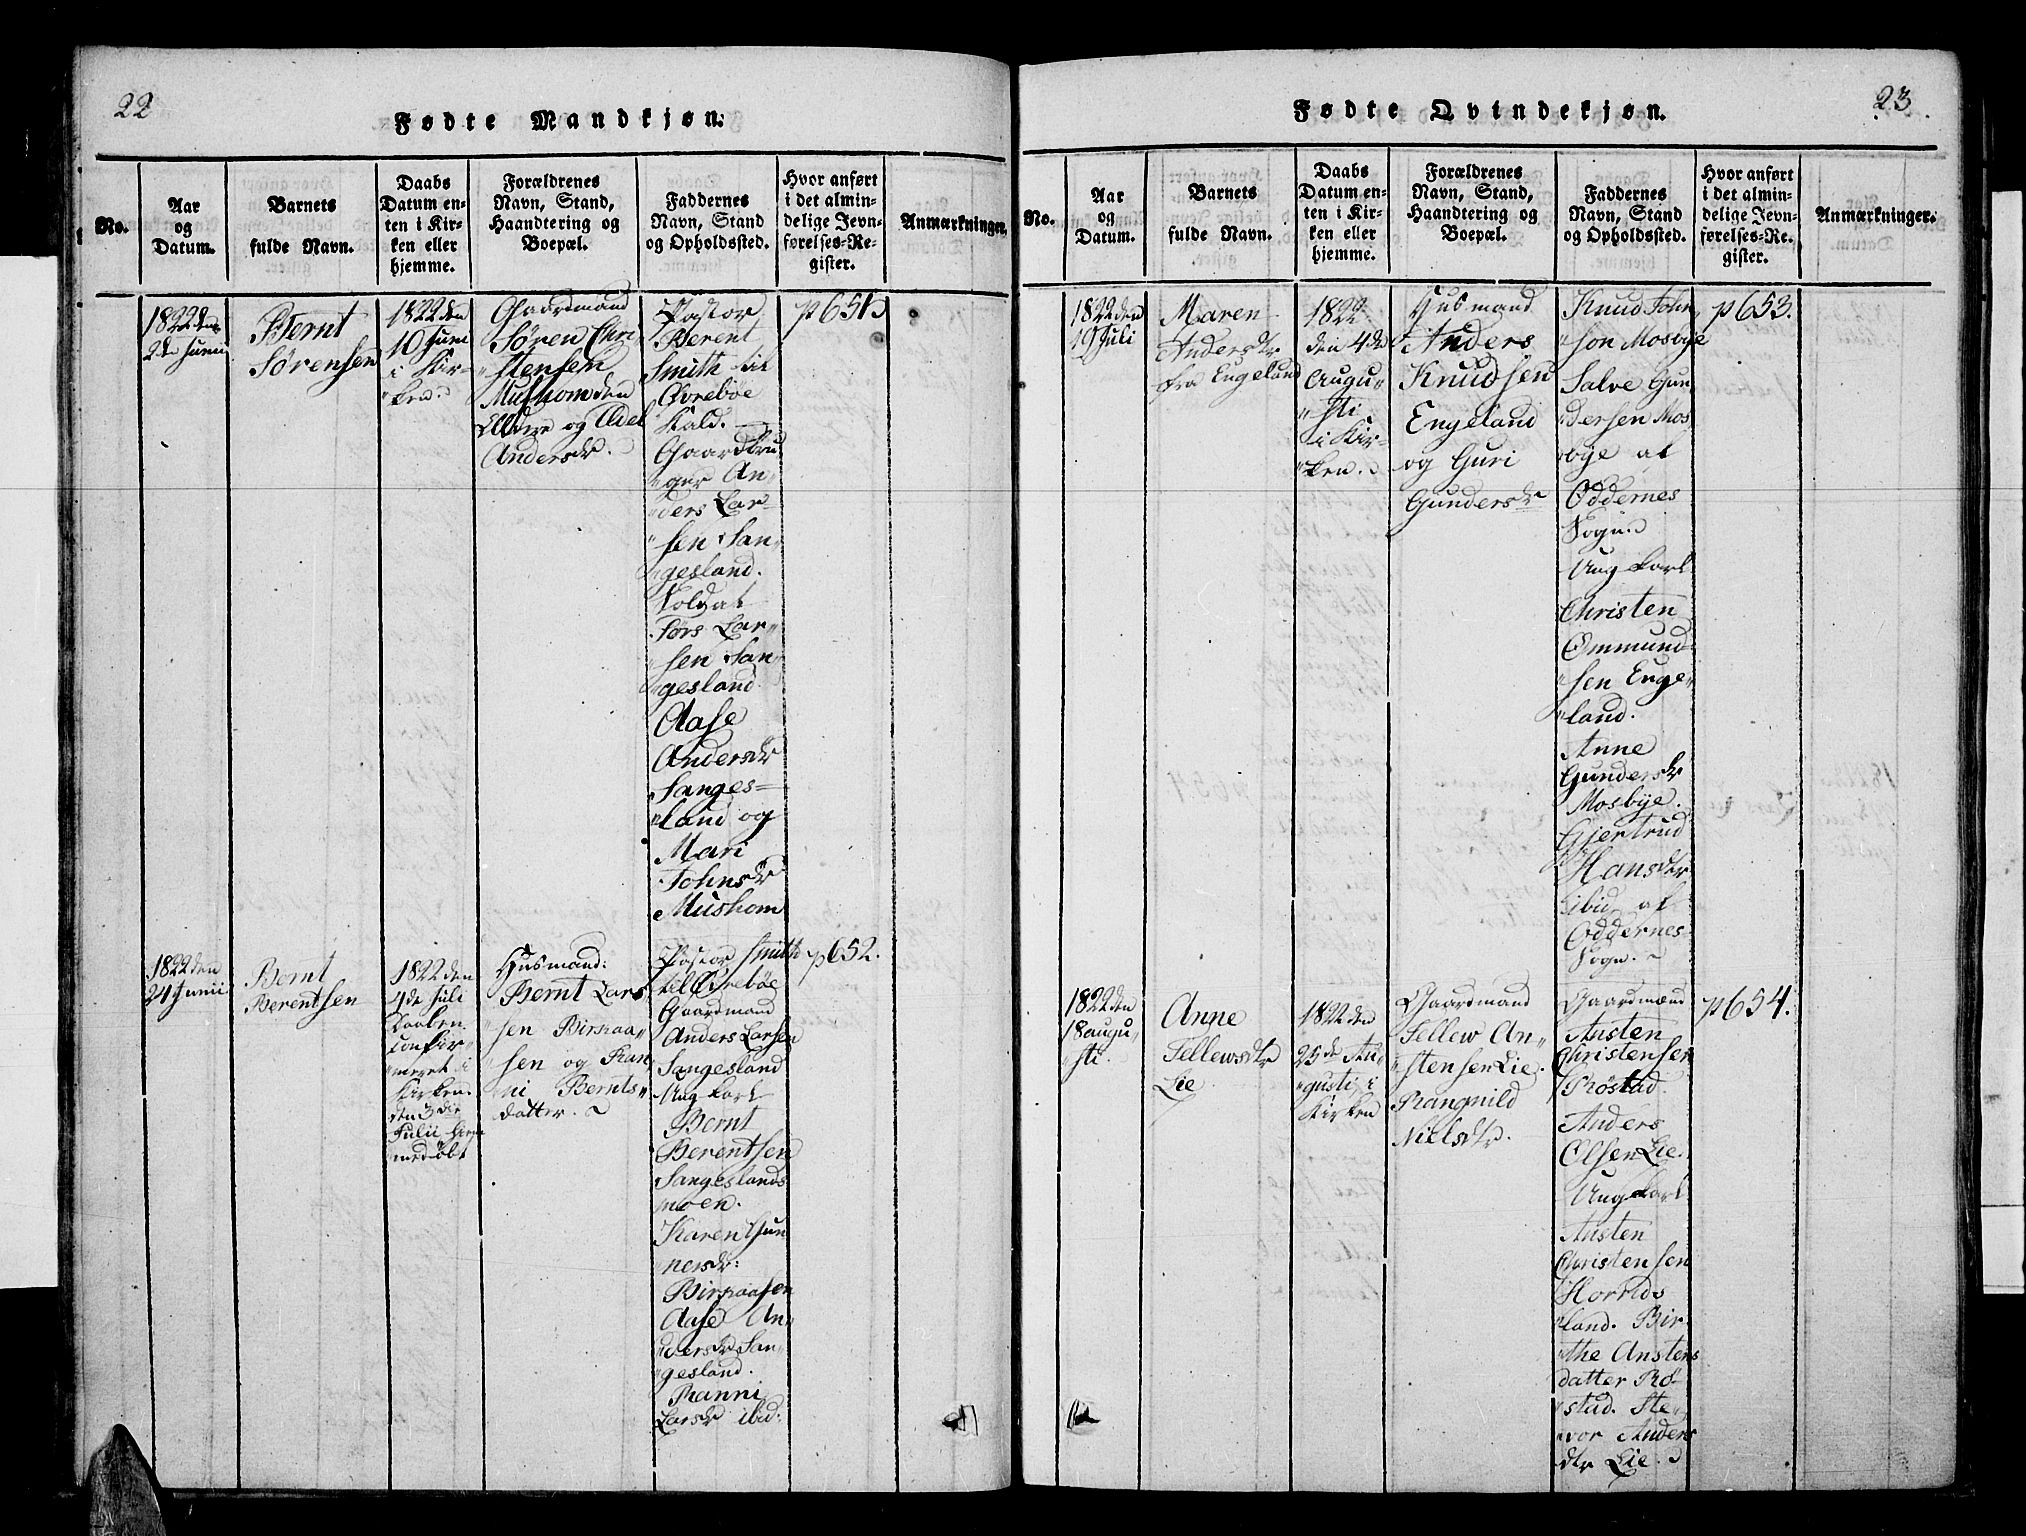 22
Fødte Mandkjøn.
No.
Aar
og
Datum.
Barnets
fulde Navn.
Daabs
Datum en-
ten i Kir-
ken eller
hjemme.
Forældrenes
Navn, Stand,
Haandtering og
Boepæl.
Faddernes
Navn, Stand
og Opholdssted.
Hvor anført
i det almin-
delige Jevn-
førelses-Re-
gister.
Anmærkninger.
1822 den
2de Junii
Bernt
Sørensen
1822 den
10 Juni
i Kir-
ken.
Gaardmand
Søren Chri
stensen
Mushom den
Eldre og Edel
Andersdr.
Pastor
Berent
Smith til
Øvrebøe
Kald.
Gaardbru
ger An
ders Lar-
sen San
gesland.
Soldat
Lars Lar
sen San
gesland.
Aase
Andersdr
Sanges=
land og
Mari
Johnsdr
Mushom
p 651
1822 den
24 Junii
Bernt
Berentsen
1822 den
4de Juli
Daaben
confir
meret i
Kirken.
den 3die
Julii hjem
medøbt
Husmand:
Bernt Lars
sen Birkaa
sen og Ran
ni Bernts
datter.
Pastor Smith
til Øvrebøe
Gaardmand
Anders Larsen
Sangesland
Ung karl
Bernt
Berentsen
Sangeslands
moen.
Karen Gun
nersdr:
Birkaasen
Aase An
dersdr San
gesland.
Ranni
Larsdr ibid:
p 652.
23
Fødte Qvindekjøn.
No.
Aar
og
Datum.
Barnets
fulde Navn.
Daabs
Datum en-
ten i Kir-
ken eller
hjemme.
Forældrenes
Navn, Stand,
Haandtering og
Boepæl.
Faddernes
Navn, Stand
og Opholdssted.
Hvor anført
i det almin-
delige Jevn-
førelses-Re-
gister.
Anmærkninger.
1822 den
19 Juli
Maren
Andersdtr
fra Engeland
1822
den 4de
Augu
sti
i Kir-
ken.
Husmand
Anders
Knudsen
Engeland
og Guri
Gundersdr
Knud John
son Mosbye
Salve Gun
dersen Mos
bye af
Oddernes
Sogn.
Ung karl
Christen
Ommund
sen Enge
land.
Anne
Gundersdr
Mosbye.
Gjertrud
Hansdtr
ibid af
Oddernes
Sogn.
p 653.
1822 den
18 augu
sti.
Anne
Tellewsdtr
Lie
1822 den
25de Au
gusti i
Kirken
Gaardmand
Tellew An
stensen Lie.
Rangnild
Nielsdtr.
Gaardmand
Ansten
Christensen
Røstad.
Anders
Olsen Lie.
Ung karl
Ansten
Christensen
Horrids
land. Bir
the Anstens
datter Rø
stad. Ste
vor Anders
dtr Lie.
p 654.